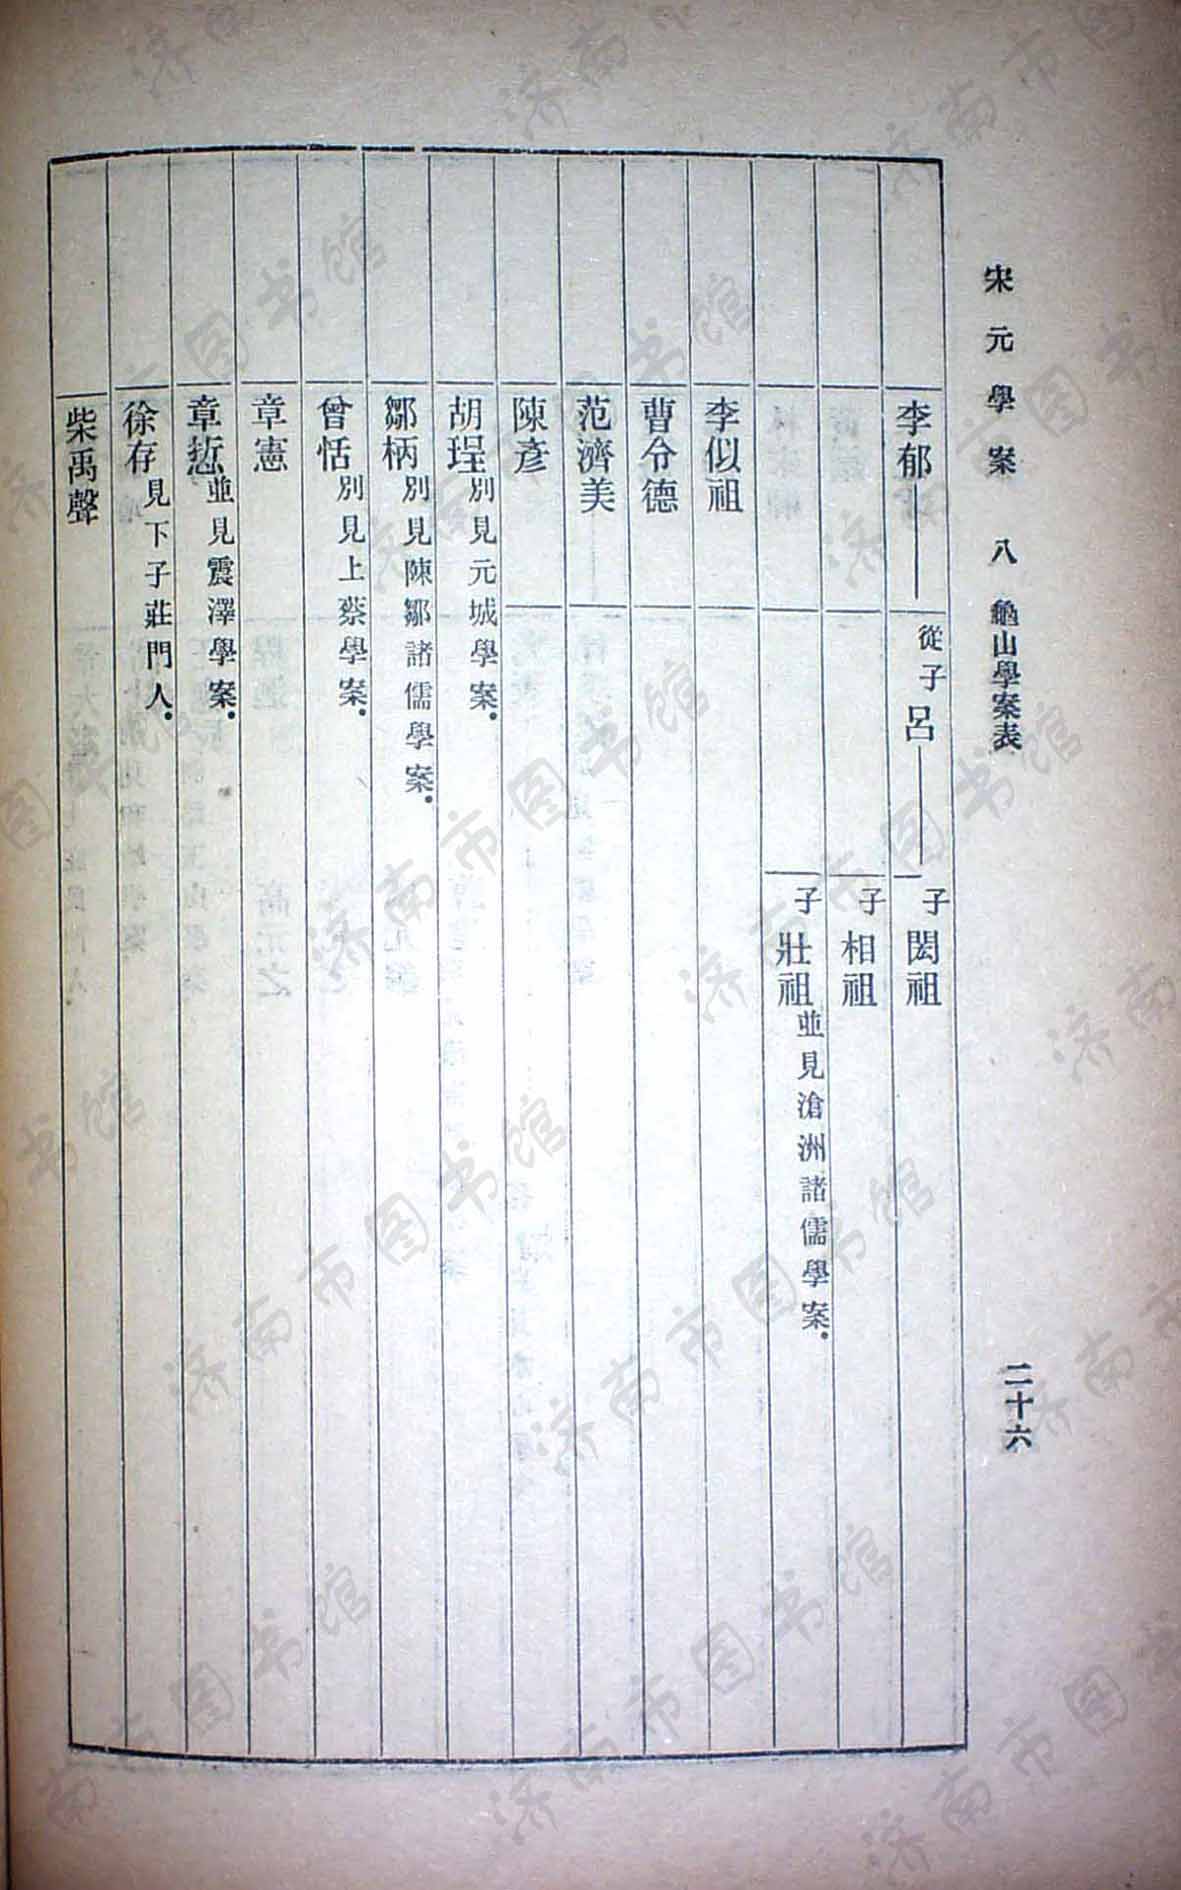 宋元學案 八 龜山學案表 二十六
李郁 從子呂 子閎祖
子相祖
子壯祖並見滄洲諸儒學案.
李似祖
曹令德
范濟美
陳彥
胡珵別見元城學案.
鄒柄別見陳鄒諸儒學案.
曾恬別見上蔡學案.
章憲
章悊並見震澤學案.
徐存見下子莊門人.
柴禹聲
济南市图书馆